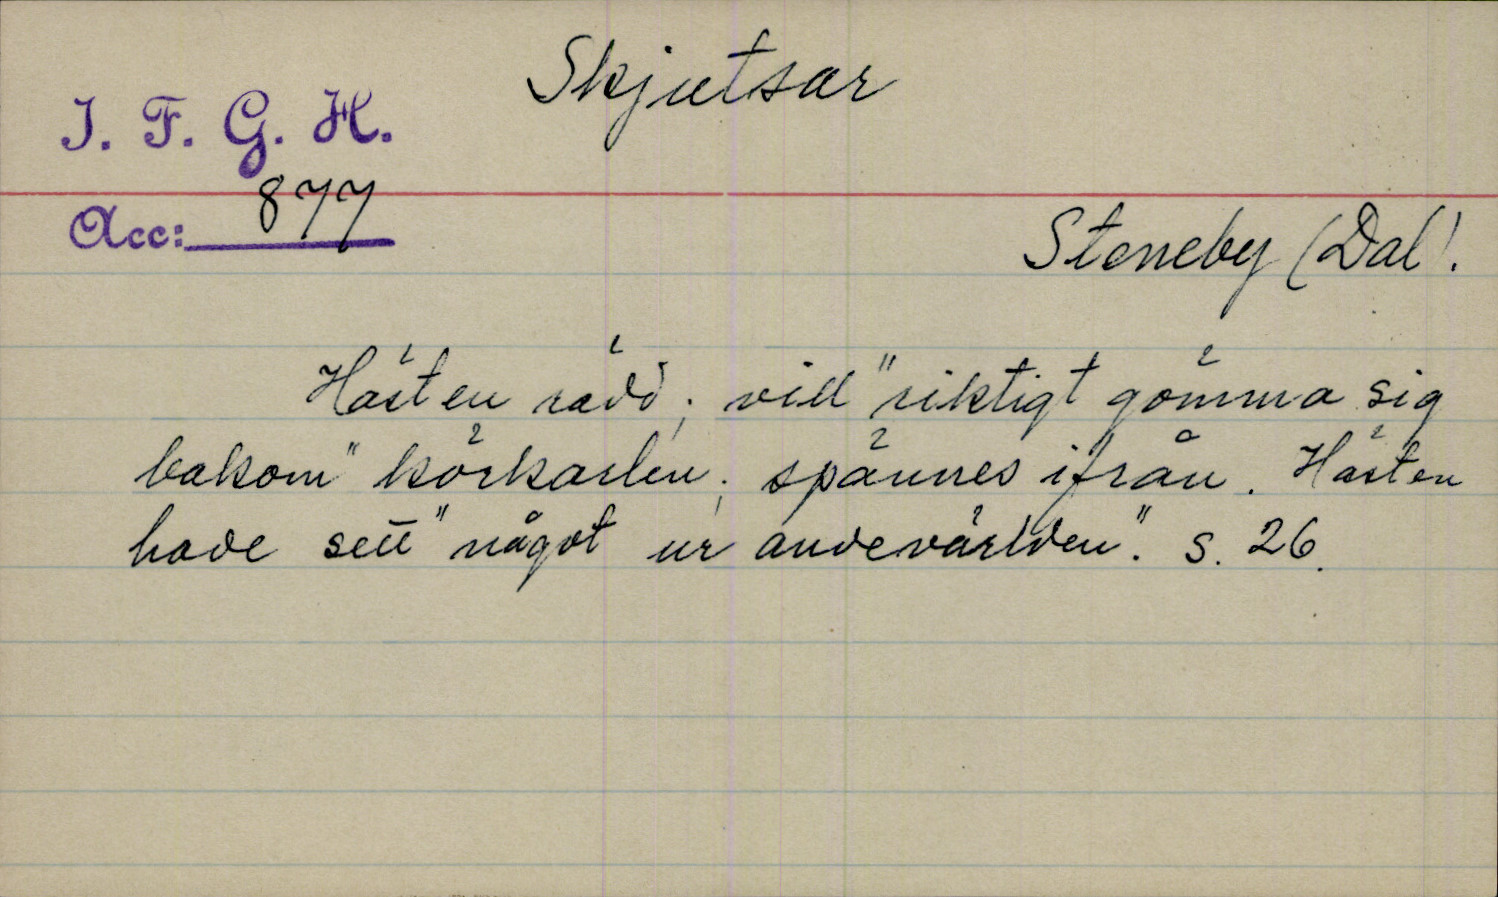 Skjutsar
I. F. G. H.
Acc: 877
Steneby (Dal).
Hästen rädd; vill "riktigt gömma sig
bakom" körkarlen; spännes ifrån. Hästen
hade sett "något ur andevärlden". s. 26.